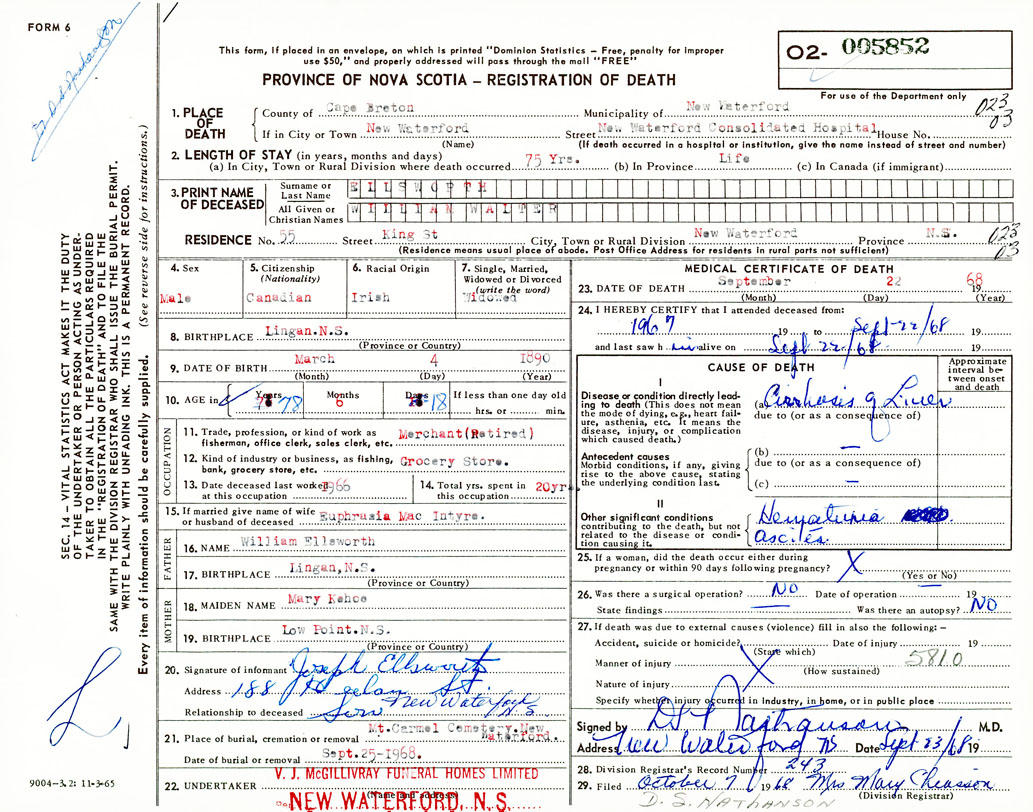 FORM 6
Dr D S Nathanson
SEC. 14 - VITAL STATISTICS ACT MAKES IT THE DUTY
OF THE UNDERTAKER OR PERSON ACTING AS UNDER-
TAKER TO OBTAIN ALL THE PARTICULARS REQUIRED
IN THE "REGISTRATION OF DEATH" AND TO FILE THE
SAME WITH THE DIVISION REGISTRAR WHO SHALL ISSUE THE BURIAL PERMIT.
WRITE PLAINLY WITH UNFADING INK. THIS IS A PERMANENT RECORD.
Every item of information should be carefully supplied. (See reverse side for instructions.)
9004-3.2: 11-3-65
This form, if placed in an envelope, on which is printed "Dominion Statistics - Free, penalty for improper
use $50," and properly addressed will pass through the mail "FREE"
PROVINCE OF NOVA SCOTIA - REGISTRATION OF DEATH
02- 005852
For use of the Department only
023
03
1. PLACE OF DEATH
County of Cape Breton Municipality of New Waterford
If in City or Town New Waterford Street New Waterford Consolidated Hospital House No.
(Name) (If death occurred in a hospital or institution, give the name instead of street and number)
2. LENGTH OF STAY (in years, months and days)
(a) In City, Town or Rural Division where death occurred 75 Yrs. (b) In Province Life (c) In Canada (if immigrant)
3. PRINT NAME OF DECEASED
Surname or Last Name ELLSWORTH
All Given or Christian Names WILLIAM WALTER
RESIDENCE No. 55 Street King St City, Town or Rural Division New Waterford Province N.S.
(Residence means usual place of abode. Post Office Address for residents in rural parts not sufficient)
023
03
4. Sex
Male
5. Citizenship
(Nationality)
Canadian
6. Racial Origin
Irish
7. Single, Married,
Widowed or Divorced
(write the word)
Widowed
8. BIRTHPLACE Lingan.N.S.
(Province or Country)
9. DATE OF BIRTH March 4 1890
(Month) (Day) (Year)
10. AGE in Years 78 Months 6 Days 18 If less than one day old
hrs. or min.
OCCUPATION
11. Trade, profession, or kind of work as Merchant(Retired)
fisherman, office clerk, sales clerk, etc.
12. Kind of industry or business, as fishing, Grocery Store.
bank, grocery store, etc.
13. Date deceased last worked 1966
at this occupation
14. Total yrs. spent in 20yr
this occupation
15. If married give name of wife
or husband of deceased Euphrasia Mac Intyre.
FATHER
16. NAME William Ellsworth
17. BIRTHPLACE Lingan,N.S.
(Province or Country)
MOTHER
18. MAIDEN NAME Mary Kehoe
19. BIRTHPLACE Low Point.N.S.
(Province or Country)
20. Signature of informant Joseph Ellsworth
Address 188 St.
New Waterford N.S.
Relationship to deceased Son
21. Place of burial, cremation or removal Mt.Carmel Cemetery.New
Waterford.
Date of burial or removal Sept.25-1968.
22. UNDERTAKER V. J. McGILLIVRAY FUNERAL HOMES LIMITED
(Name and address)
NEW WATERFORD, N. S.
MEDICAL CERTIFICATE OF DEATH
23. DATE OF DEATH September 22 1968
(Month) (Day) (Year)
24. I HEREBY CERTIFY that I attended deceased from:
1967 19 to Sept-22/68 19
and last saw h im alive on Sept 22/68 19
CAUSE OF DEATH
Approximate
interval be-
tween onset
and death
I
Disease or condition directly lead-
ing to death (This does not mean
the mode of dying, e.g., heart fail-
ure, asthenia, etc. It means the
disease, injury, or complication
which caused death.)
(a) Cirrhosis of Liver
due to (or as a consequence of)
Antecedent causes
Morbid conditions, if any, giving
rise to the above cause, stating
the underlying condition last.
(b) —
due to (or as a consequence of)
(c) —
II
Other significant conditions
contributing to the death, but not
related to the disease or condi-
tion causing it.
Hematuria
Ascites.
25. If a woman, did the death occur either during
pregnancy or within 90 days following pregnancy? X
(Yes or No)
26. Was there a surgical operation? NO Date of operation — 19
State findings — Was there an autopsy? NO
27. If death was due to external causes (violence) fill in also the following:-
Accident, suicide or homicide? Date of injury 19
(State which)
Manner of injury 5810
(How sustained)
Nature of injury X
Specify whether injury occurred in Industry, in home, or in public place
Signed by D S Nathanson M.D.
Address New Waterford NS Date Sept 23/68 19
28. Division Registrar's Record Number 243
29. Filed October 7 1968 Mrs Mary Chiasson
(Division Registrar)
D. S. NATHANSON